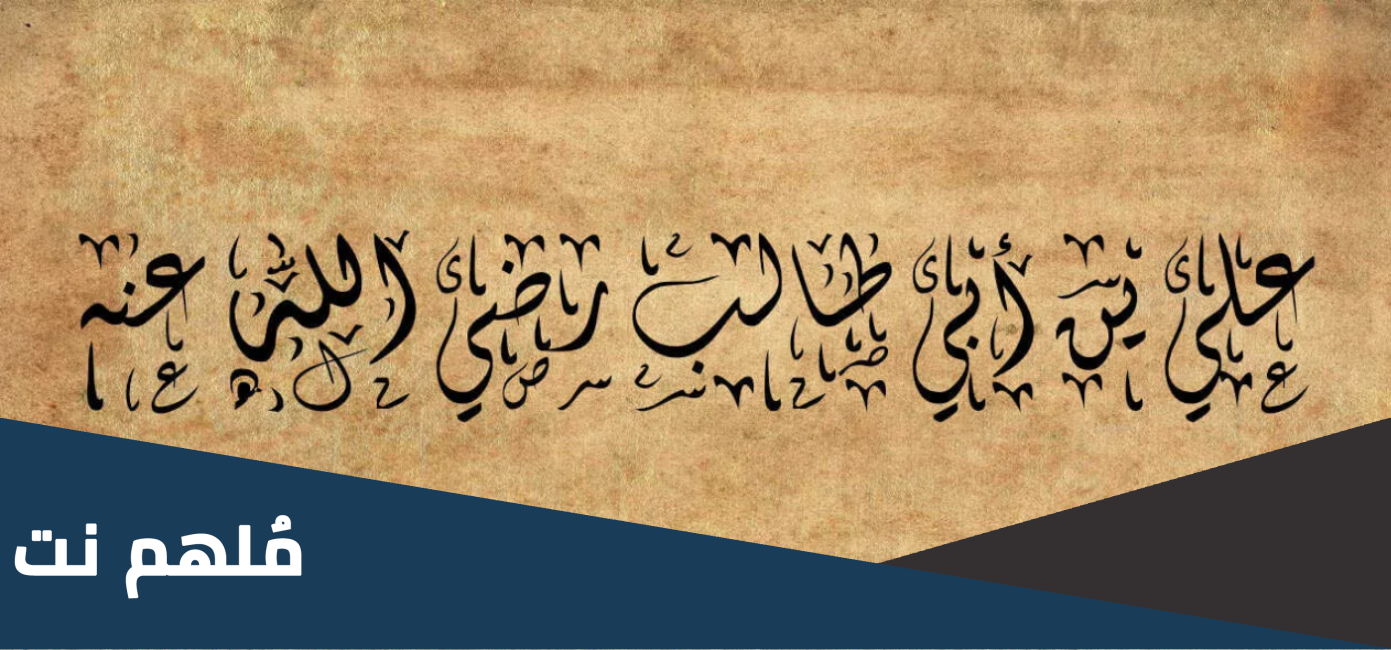 علي بن أبي طالب رضي الله عنه
مُلهم نت